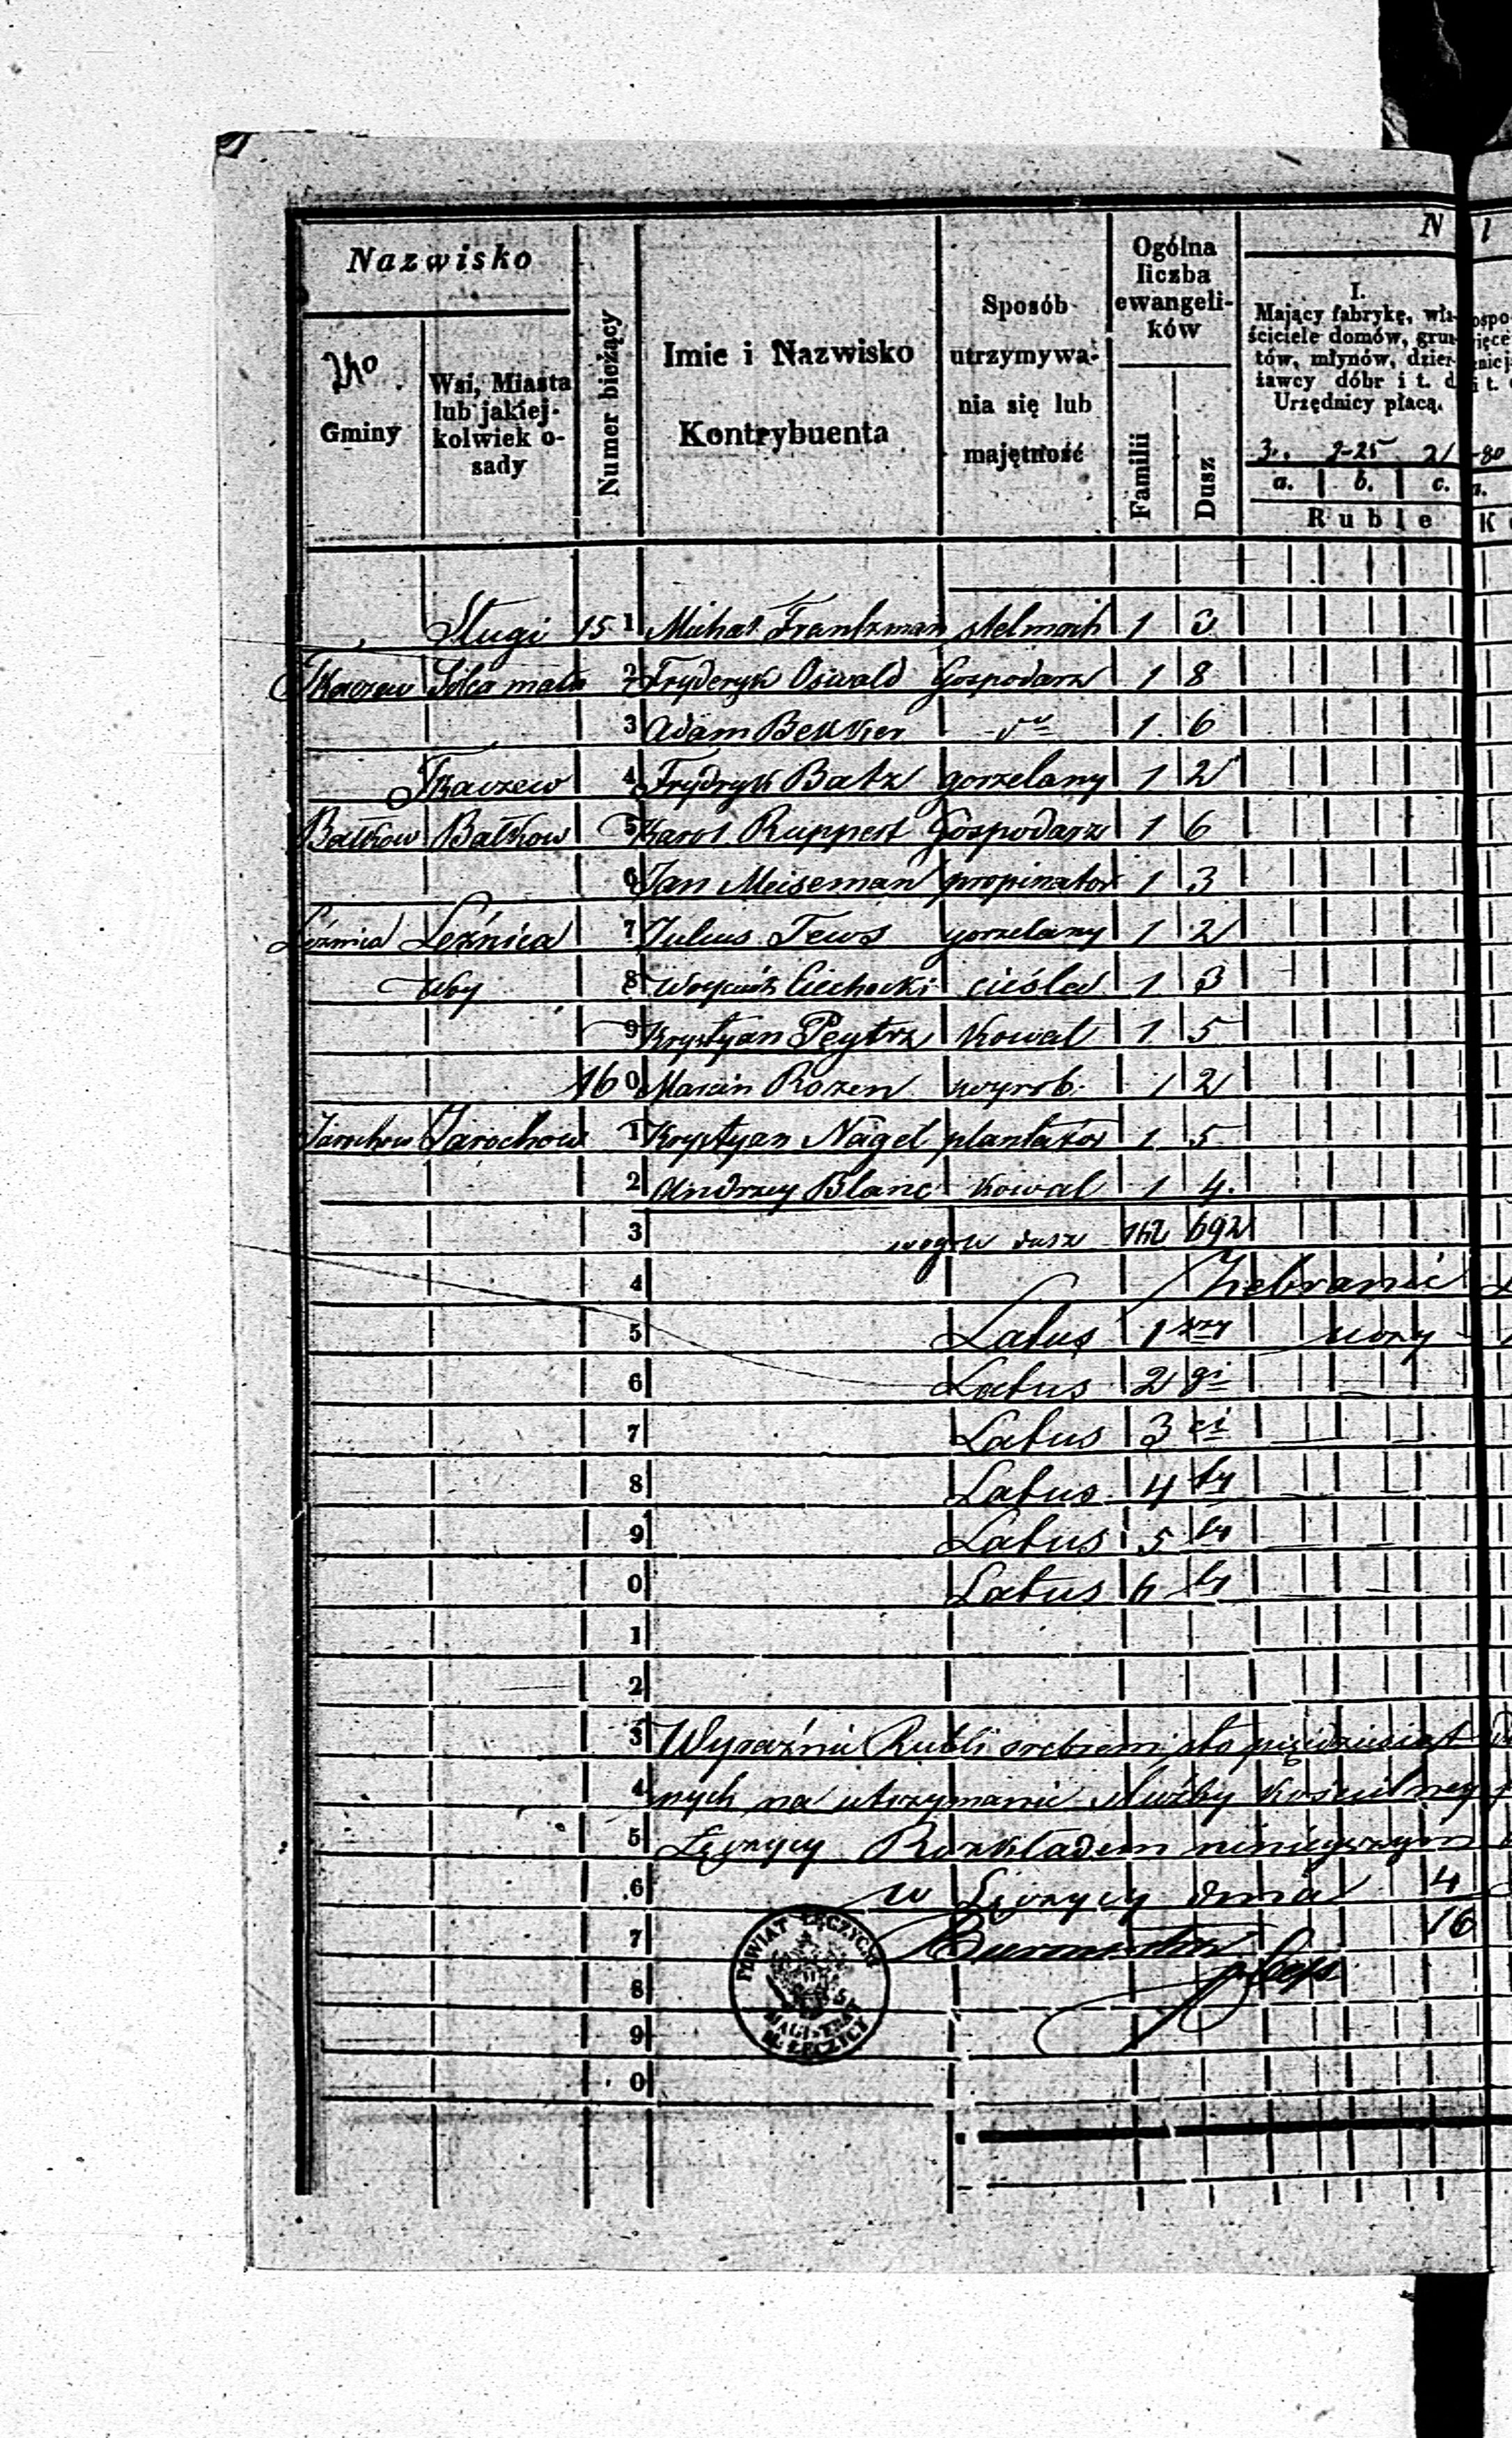 N
Nazwisko
Gminy
Wsi, Miasta
lub jakiej-
kolwiek o-
sady
Numer bieżący
Imie i Nazwisko
Kontrybuenta
Sposób
utrzymywa-
nia się lub
majętność
Ogólna
liczba
ewangeli-
ków
Familii
Dusz
I.
Mający fabrykę, wła-
ściciele domów, grun-
tów, młynów, dzier-
żawcy dóbr i t. d.
Urzędnicy płacą.
a. b. c.
Ruble K
Sługi 151 Michał Frantzman stelmach 1 3
Tkaczew Solca mała 2 Fryderyk Oswald Gospodarz 1 8
3 Adam Bekker 1 6
Tkaczew 4 Frydryk Batz gorzelany 1 2
Bałkow Bałkow 5 Karol Ruppert Gospodarz 1 6
6 Jan Meiseman propinator 1 3
Leźnica Leźnica 7 Julius Tews gorzelany 1 2
8 Woyciech Ciechocki cieśla 1 3
9 Krystyan Peytrz Kowal 1 5
160 Marcin Rozen wyrob. 1 2
Jarochow Jarochow 1 Krystyan Nagel plantator 1 5
2 Andrzey Blanc Kowal 1 4
3 dusz 162 692
4 Zebranie
5 Latus 1wszy
6 Latus 2gi
7 Latus 3ci
8 Latus 4ty
9 Latus 5ty
0 Latus 6ty
1
2
3 Wyraźnie Rubli srebrem sto pięćdziesiąt
4 nych na utrzymanie służby kościelney
5 Łęczycy Rozkładem ninieyszym
6 w Łęczycy dnia 4
7 Burmistrz 16
8
9
0
POWIAT ŁĘCZYCKI
MAGISTRAT
M. ŁĘCZYCY